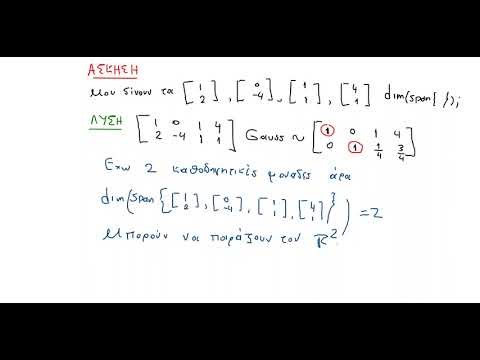 ΑΣΚΗΣΗ
Μου δίνουν τα [1 2], [0 -4], [1 1], [4 1] dim(span{ });
ΛΥΣΗ [1 0 1 4 Gauss ~ [1 0 1 4
2 -4 1 1] 0 1 1/4 3/4]
Εχω 2 καθοδηγητικές μονάδες άρα
dim(span{[1 2], [0 -4], [1 1], [4 1]}) = 2
Μπορούν να παράξουν τον R²